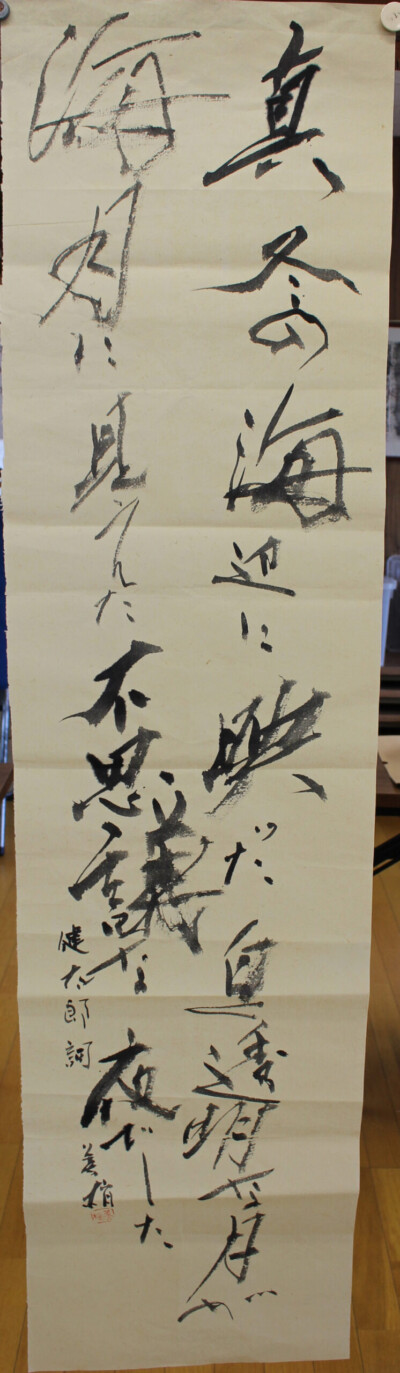 真冬の海辺に映った半透明な月が
海月に見えた不思議な夜でした
健太郎詞